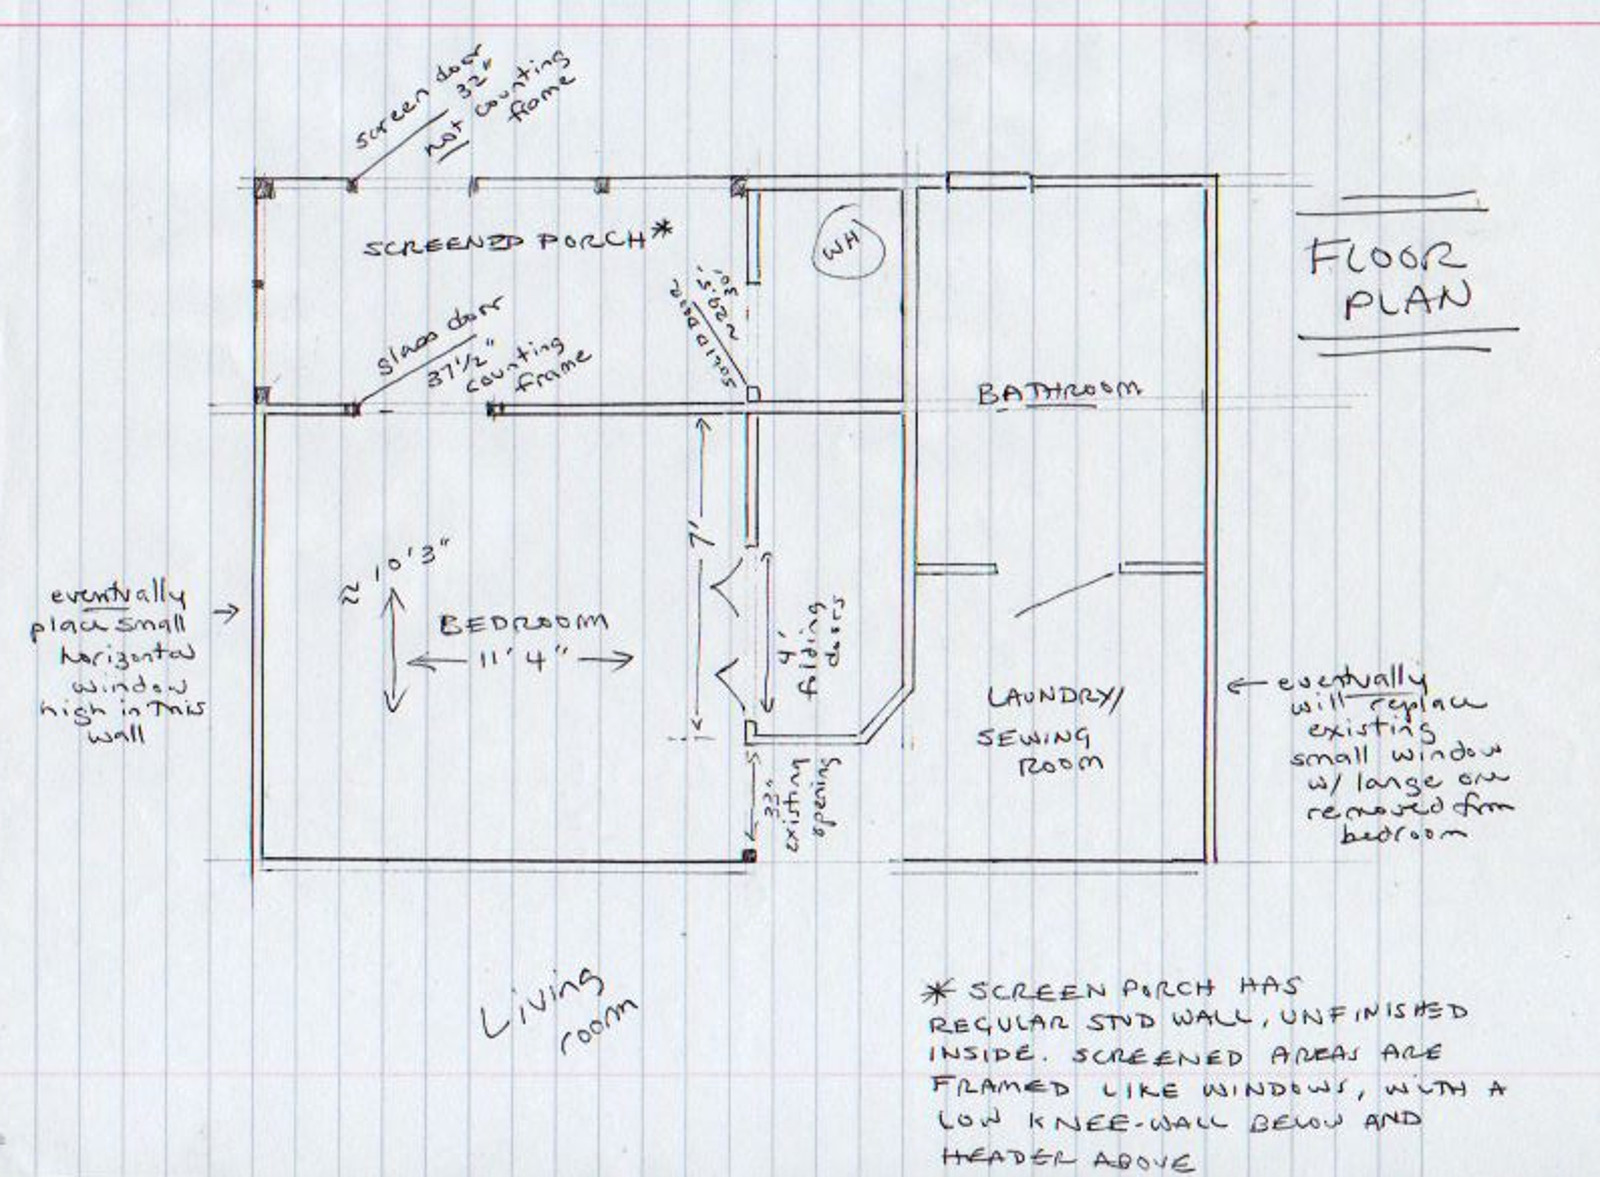 screen door
32"
not counting
frame
SCREENED PORCH*
WH
FLOOR
PLAN
glass door
37 1/2"
counting
frame
SOLID DOOR
~ 29.5"
30"
BATHROOM
7'
≈ 10'3"
BEDROOM
11' 4"
4'
folding
doors
eventually
place small
horizontal
window
high in this
wall
LAUNDRY/
SEWING
ROOM
eventually
will replace
existing
small window
w/ large one
removed from
bedroom
33"
existing
opening
Living
room
* SCREEN PORCH HAS
REGULAR STUD WALL, UNFINISHED
INSIDE. SCREENED AREAS ARE
FRAMED LIKE WINDOWS, WITH A
LOW KNEE-WALL BELOW AND
HEADER ABOVE